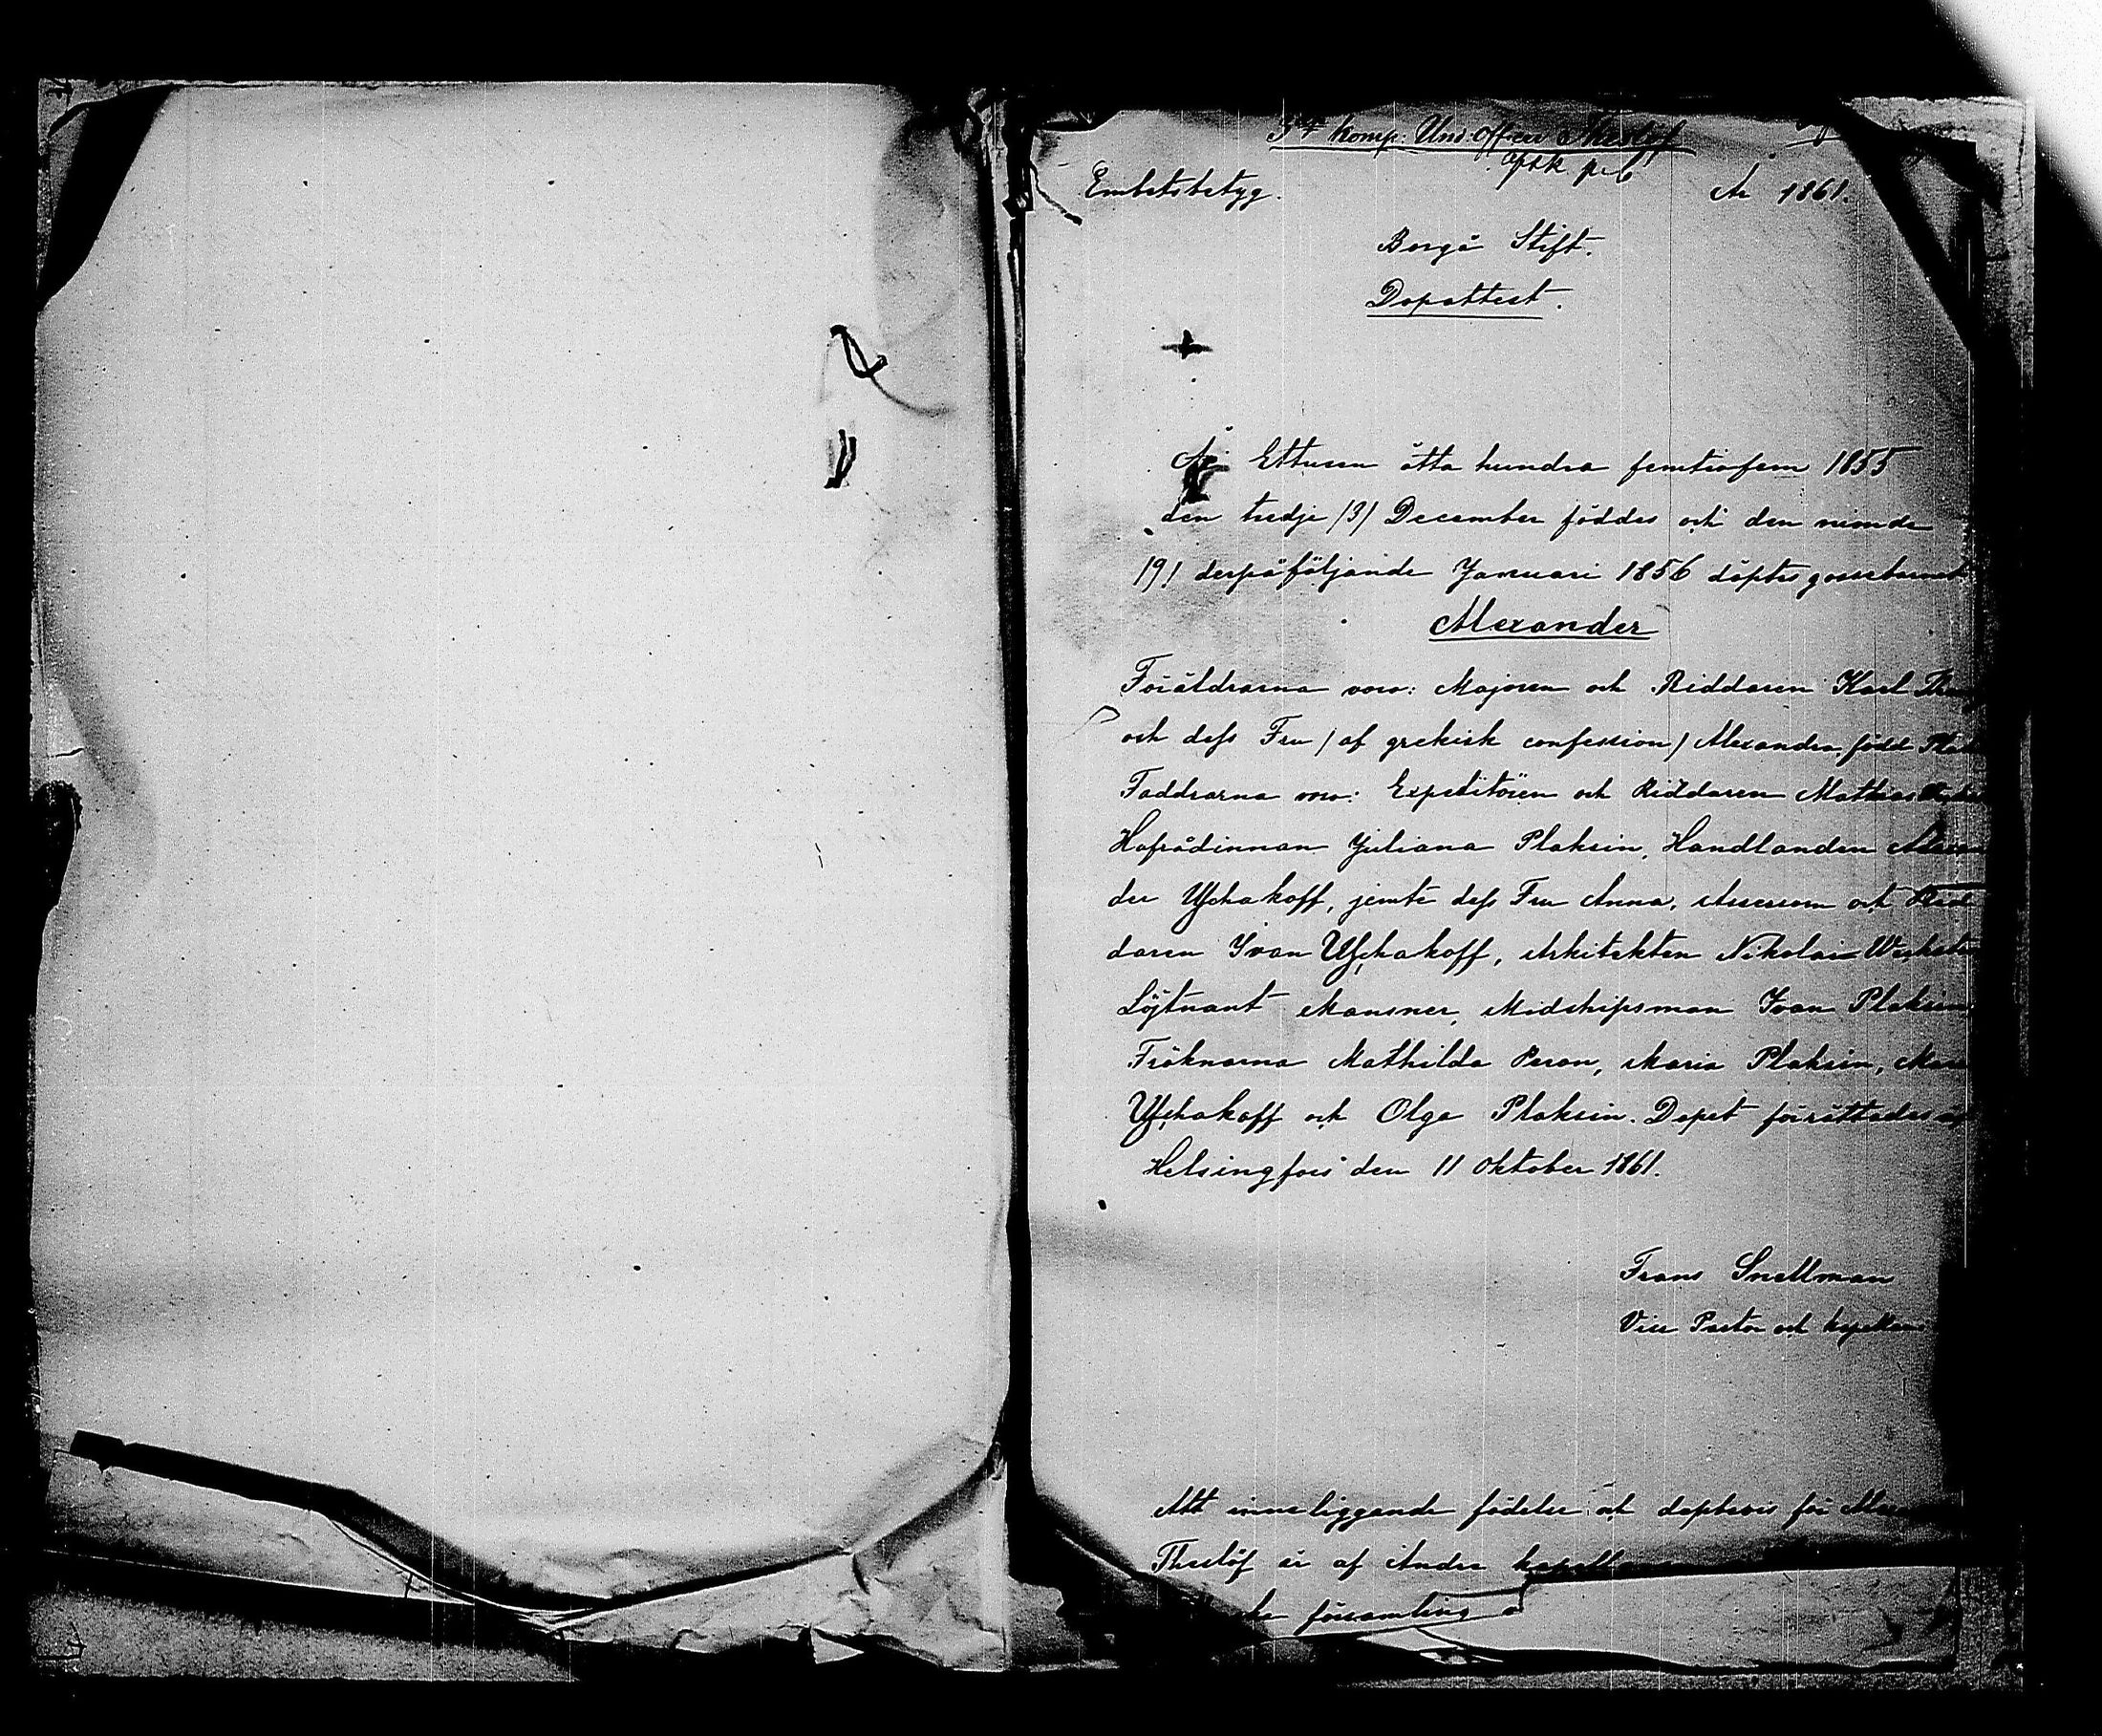 3dje Komp: Und: officer Theslöf
Embetsbetyg.
År 1861.
Borgå Stift.
Dopattest.
År Ettusen åtta hundra femtiofem 1855
den tredje /3/ December föddes och den nionde
/9/ derpåföljande Januari 1856 döptes gossebarnet
Alexander
Föräldrarna voro: Majoren och Riddaren Karl
och dess Fru / af grekisk confession / Alexandra, född
Faddrarna voro: Expeditören och Riddaren Mathias
Hofrådinnan Juliana Plaksin, Handlanden Alexan
der Uschakoff, jemte dess Fru Anna, Assessorn och Rid
daren Ivan Uschakoff, Arkitekten Nikolai
Löjtnant Mansner, Midshipsman Ivan Plaksin,
Fröknarna Mathilda Peron, Maria Plaksin,
Uschakoff och Olga Plaksin. Dopet förrättades af
Helsingfors den 11 Oktober 1861.
Frans Snellman
Vice Pastor och kapellan
Att inneliggande födelse och dopbevis för
Theslöf är af Andre
församling